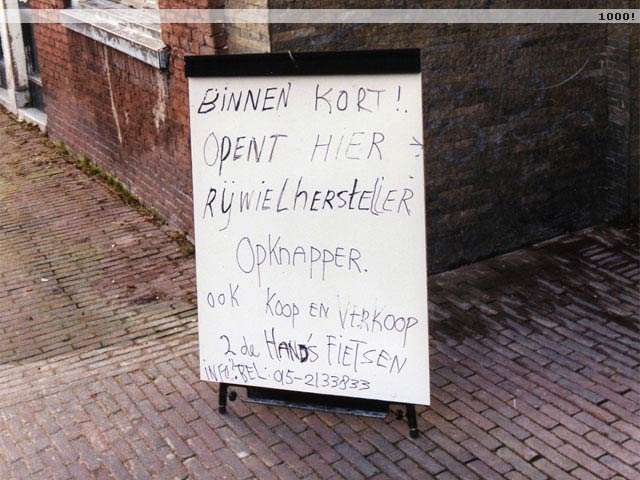 1000!
BINNEN KORT!
OPENT HIER →
RIJWIELhersteLLER
OPKNAPPER.
ook KOOP EN VERKOOP
2de HAND'S FIETSEN
INFO? BEL: 015-2133833